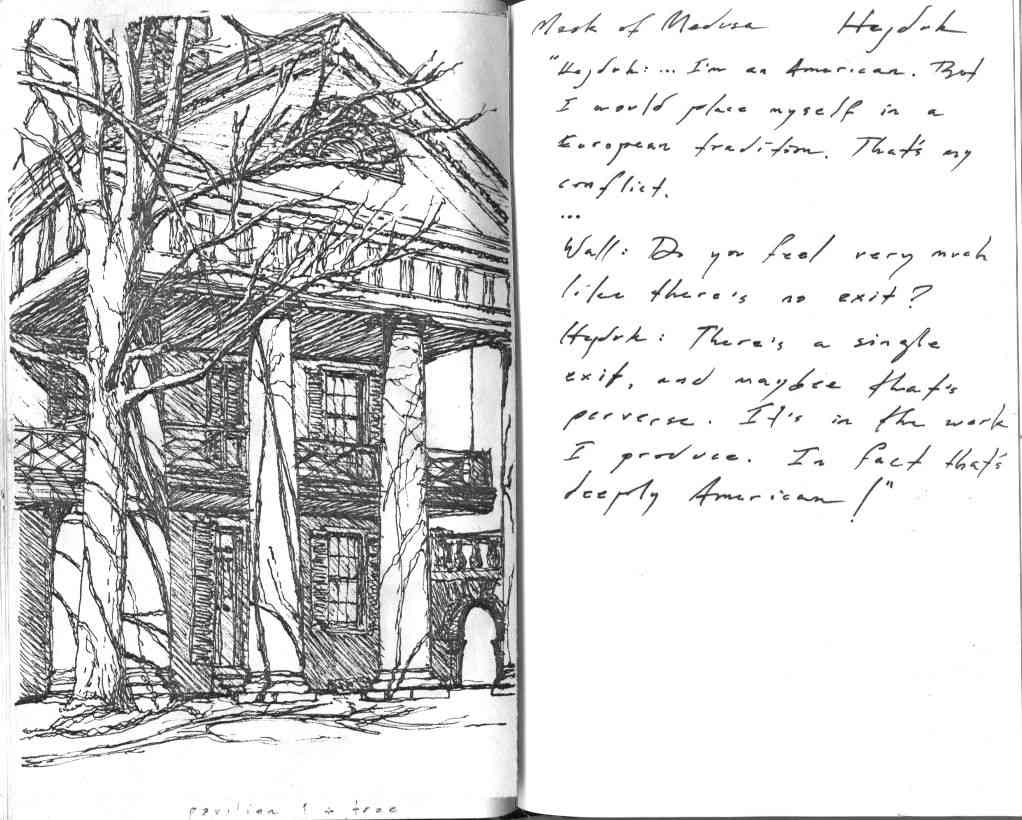 Mask of Medusa Hejduk
"Hejduk: ... I'm an American. But
I would place myself in a
European tradition. That's my
conflict.
...
Wall: Do you feel very much
like there's no exit?
Hejduk: There's a single
exit, and maybee that's
perverse. It's in the work
I produce. In fact that's
deeply American!"
pavilion 1 + tree